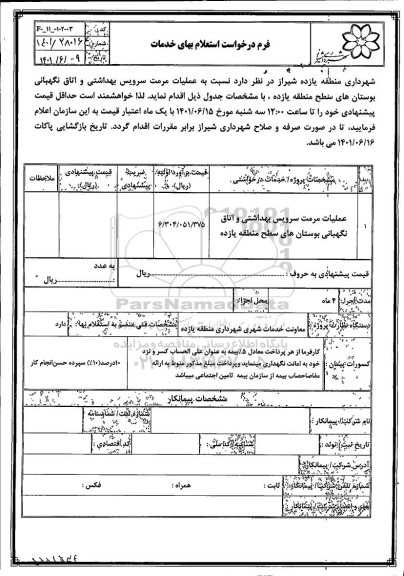 کد فرم: F-۱۱-۰۱-۲۰۰۳
۱۴۰۱/۲۸۰۱۶
۱۴۰۱/۶/۰۹
فرم درخواست استعلام بهای خدمات
شهرداری منطقه یازده شیراز در نظر دارد نسبت به عملیات مرمت سرویس بهداشتی و اتاق نگهبانی
بوستان های سطح منطقه یازده ، با مشخصات جدول ذیل اقدام نماید. لذا خواهشمند است حداقل قیمت
پیشنهادی خود را تا ساعت ۱۳:۰۰ سه شنبه مورخ ۱۴۰۱/۰۶/۱۵ با یک ماه اعتبار قیمت به این سازمان اعلام
فرمایید، تا در صورت صرفه و صلاح شهرداری شیراز برابر مقررات اقدام گردد. تاریخ بازگشایی پاکات
۱۴۰۱/۰۶/۱۶ می باشد.
ردیف مشخصات پروژه/خدمات درخواستی قیمت برآورد اولیه (ریال) ضریب پیشنهادی قیمت پیشنهادی (ریال) ملاحظات
۱ عملیات مرمت سرویس بهداشتی و اتاق نگهبانی بوستان های سطح منطقه یازده ۶/۳۰۴/۰۵۱/۳۷۵
قیمت پیشنهادی به حروف : ریال به عدد ریال
مدت اجرا: ۴ ماه محل اجرا:
دستگاه نظارت پروژه: معاونت خدمات شهری شهرداری منطقه یازده مشخصات فنی منضم به استعلام بها: دارد
کسورات پیمان : کارفرما از هر پرداخت معادل ۵٪ بیمه به عنوان علی الحساب کسر و نزد
خود به امانت نگهداری مینماید و پرداخت مبلغ مذکور منوط به ارائه
مفاصاحساب بیمه از سازمان تامین اجتماعی میباشد
۱۰درصد(۱۰٪) سپرده حسن انجام کار
مشخصات پیمانکار
نام شرکت/ پیمانکار: شماره ثبت / شناسنامه
تاریخ ثبت/ تولد : شناسه/کدملی: کد اقتصادی :
آدرس شرکت/ پیمانکار:
شماره تلفن شرکت/ پیمانکار: ثابت : همراه : فکس :
ParsNamadData